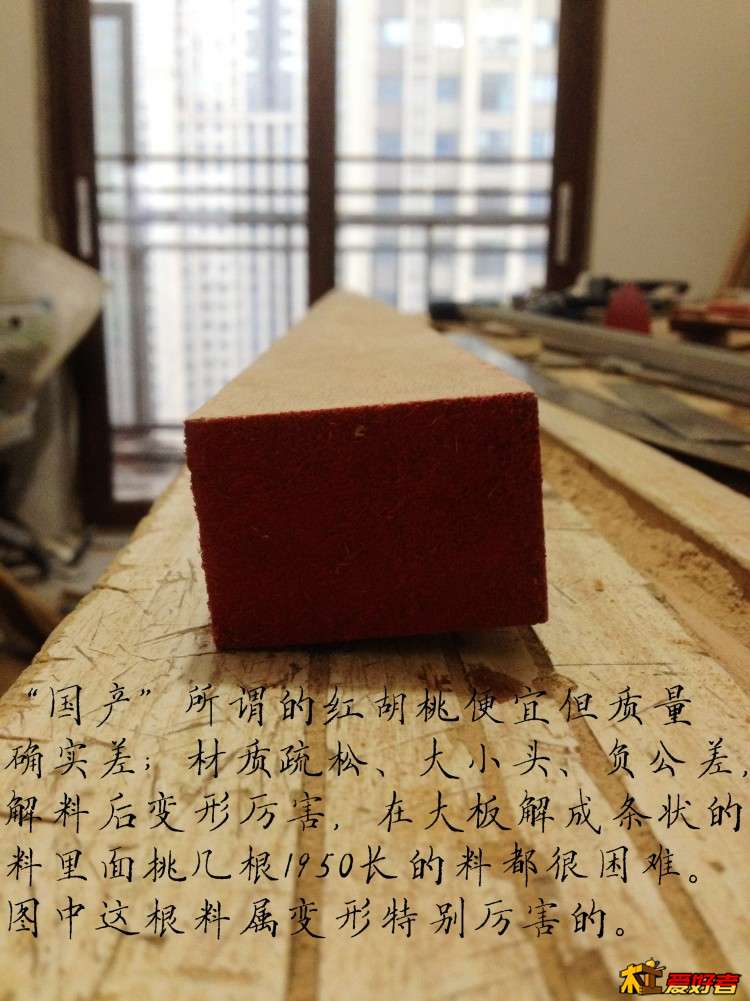 “国产”所谓的红胡桃便宜但质量
确实差；材质疏松、大小头、负公差，
解料后变形厉害，在大板解成条状的
料里面挑几根1950长的料都很困难。
图中这根料属变形特别厉害的。
木工爱好者